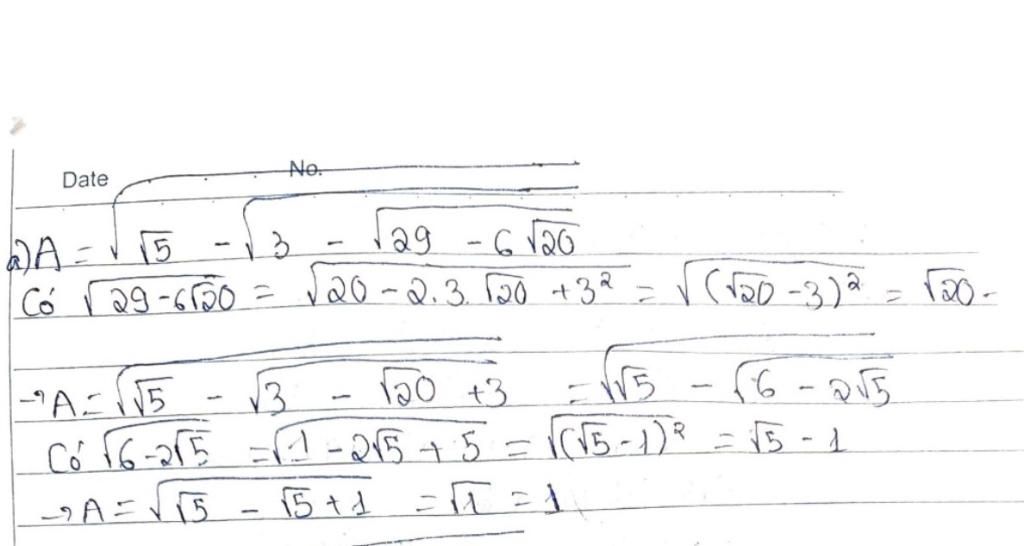 Date No.
a) A = √(√5 - √(3 - √(29 - 6√20)))
Có √(29-6√20) = √(20 - 2.3.√20 + 3²) = √((√20 - 3)²) = √20 -
→ A = √(√5 - √(3 - √20 + 3)) = √(√5 - √(6 - 2√5))
Có √(6-2√5) = √(1 - 2√5 + 5) = √((√5 - 1)²) = √5 - 1
→ A = √(√5 - √5 + 1) = √1 = 1